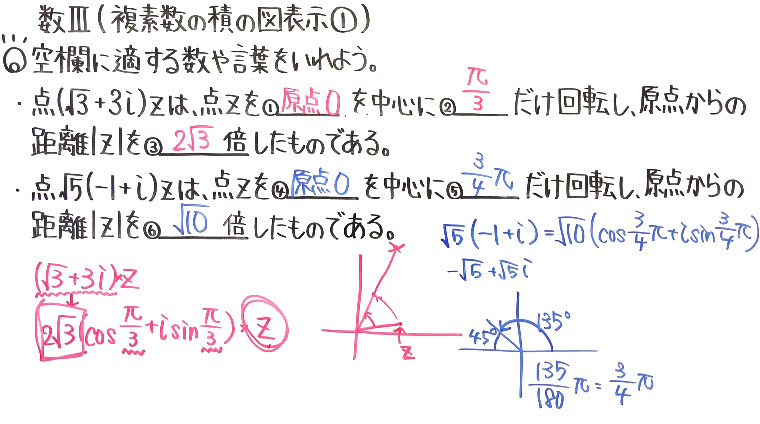 数Ⅲ(複素数の積の図表示①)
◎空欄に適する数や言葉をいれよう。
・点(√3+3i)zは、点zを①原点0を中心に②π/3だけ回転し、原点からの
距離|z|を③2√3倍したものである。
・点√5(-1+i)zは、点zを④原点0を中心に⑤3/4πだけ回転し、原点からの
距離|z|を⑥√10倍したものである。
√5(-1+i)=√10(cos3/4π+isin3/4π)
-√5+√5i
(√3+3i)×z
2√3(cosπ/3+isinπ/3)×z
z
45°
135°
135/180π=3/4π